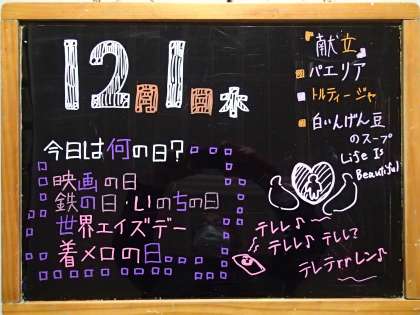 12月1日水
今日は何の日?
映画の日
鉄の日・いのちの日
世界エイズデー
着メロの日
献立
パエリア
トルティージャ
白いんげん豆
のスープ
Life Is
Beautiful
テレレ♪
テレレ♪ テレレ?
テレテrrレン♪